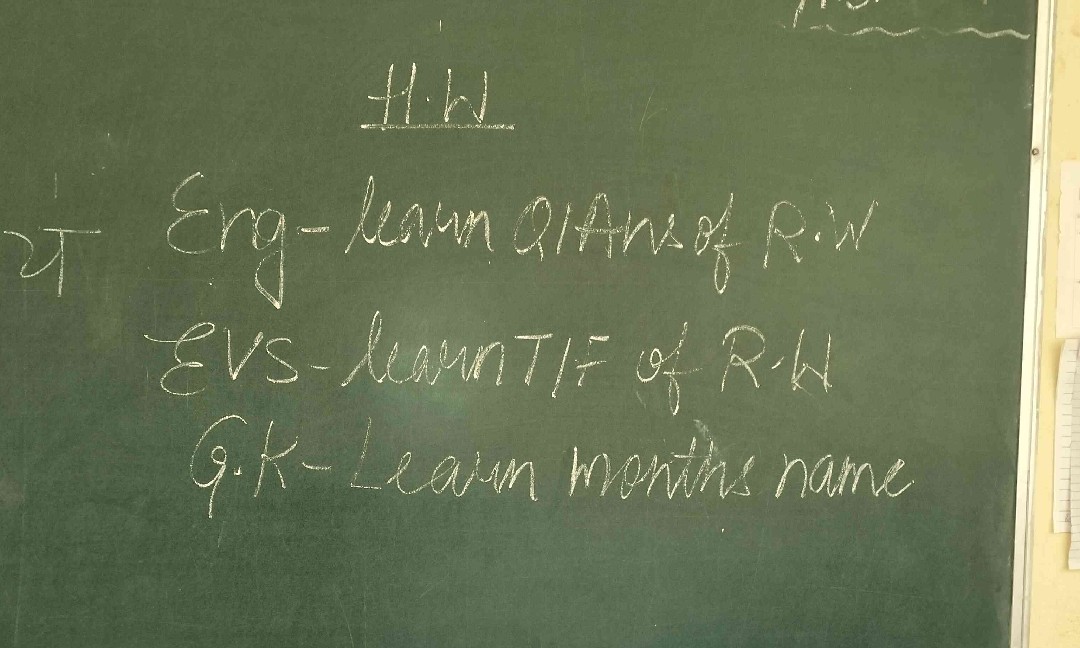 H.W
Eng- learn Q/Ans of R.W
EVS- learn T/F of R.W
G.K- Learn months name